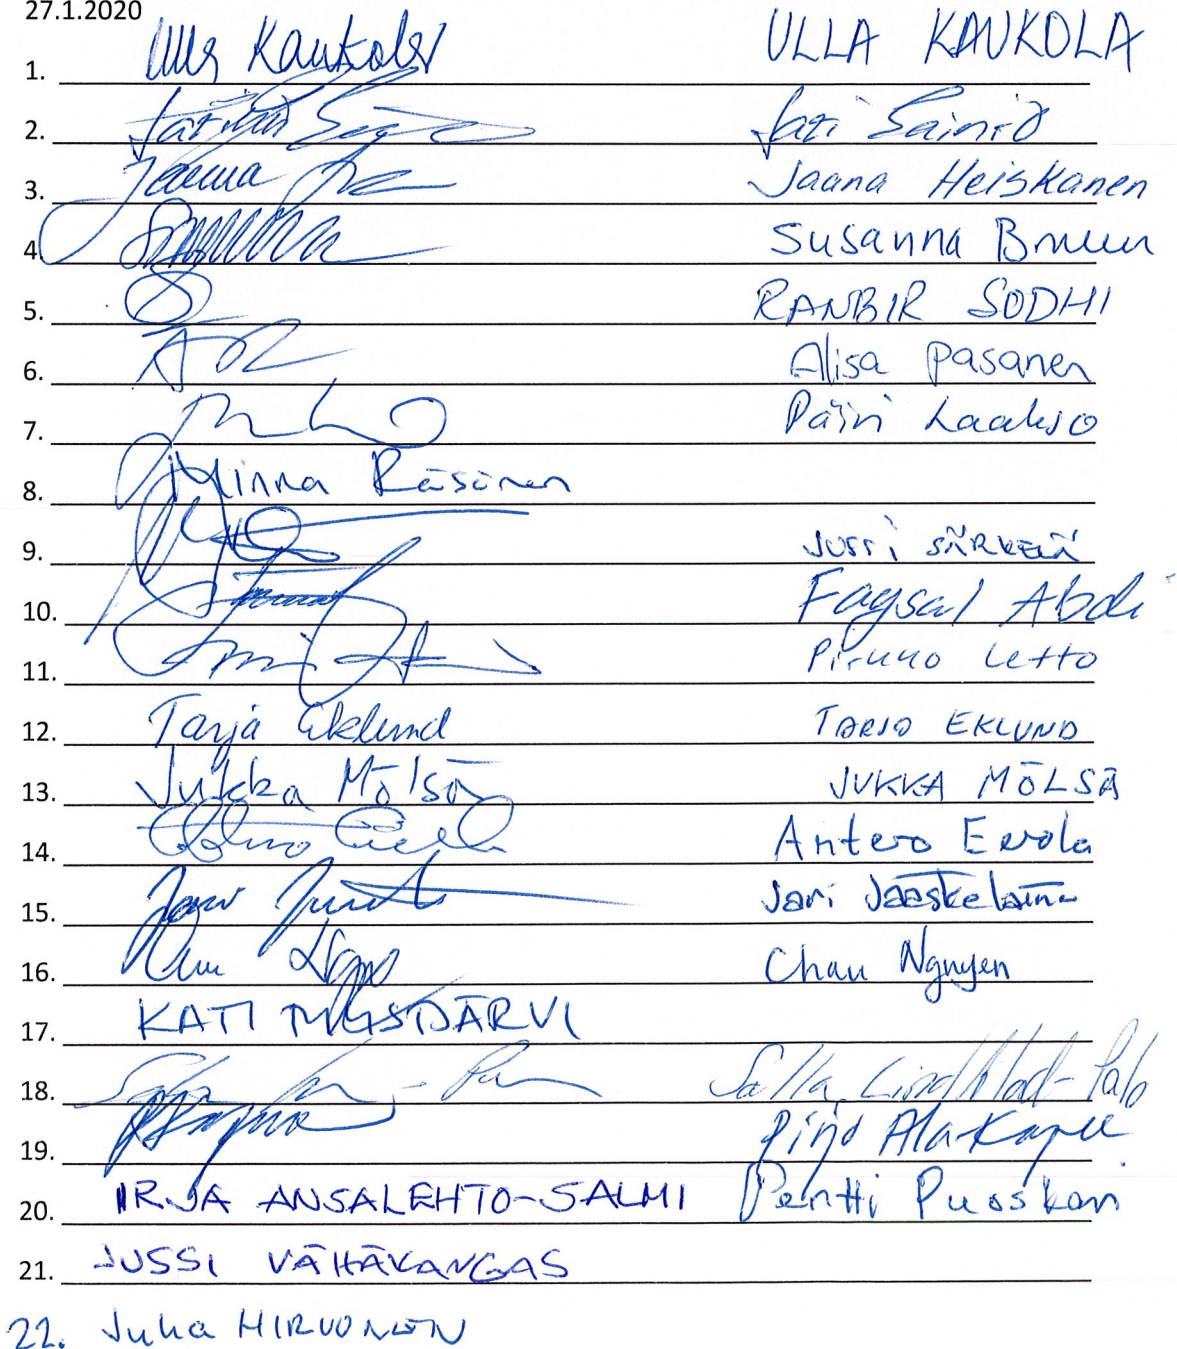 27.1.2020
1. Ulla Kaukola ULLA KAUKOLA
2. Sati Sainio
3. Jaana Jaana Heiskanen
4. Susanna Bruun
5. RANBIR SODHI
6. Alisa Pasanen
7. Päivi Laakso
8. Minna Räsänen
9. JUSSI SÄRKELÄ
10. Faysal Abdi
11. Letto
12. Tarja Eklund TARJA EKLUND
13. Jukka Mölsä JUKKA MÖLSÄ
14. Antero Eerola
15. Jari Jari Jääskeläinen
16. Chau Nguyen
17. KATI TYYSTJÄRVI
18. Salla Lindblad-Palo
19. Pirjo Ala-Kapee
20. IRJA ANSALEHTO-SALMI Pentti Puoskari
21. JUSSI VÄHÄKANGAS
22. Juha HIRVONEN